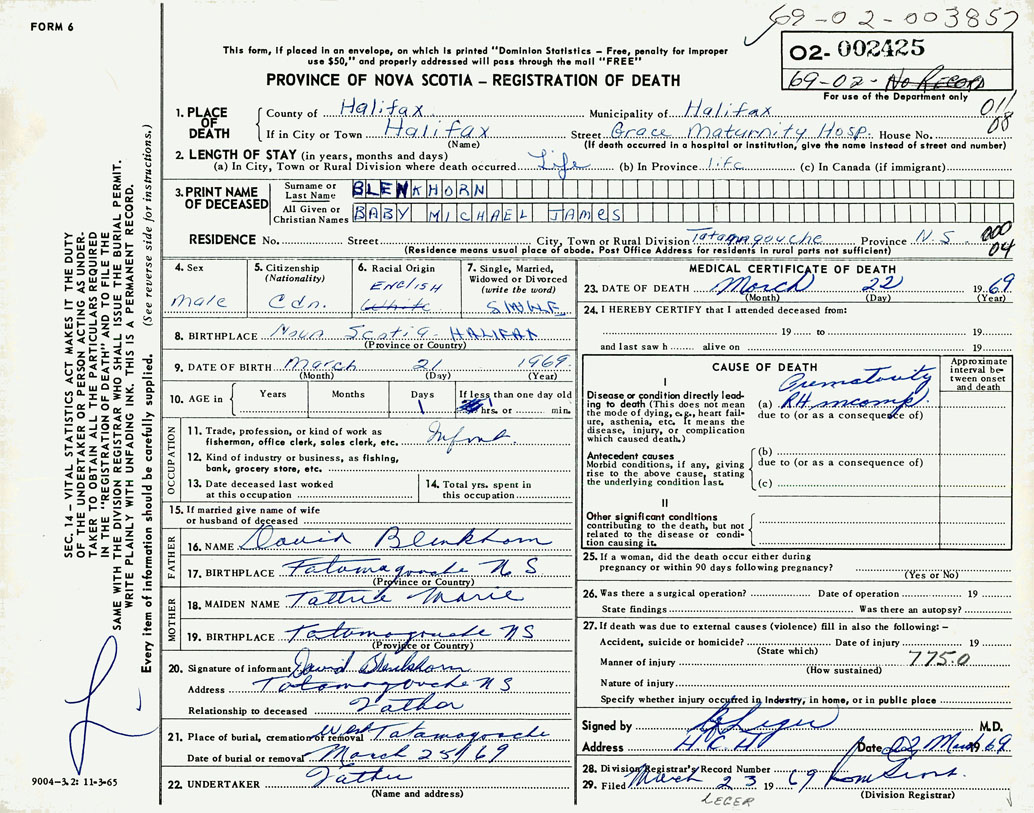 FORM 6
69-02-003857
This form, if placed in an envelope, on which is printed "Dominion Statistics – Free, penalty for improper
use $50," and properly addressed will pass through the mail "FREE"
PROVINCE OF NOVA SCOTIA – REGISTRATION OF DEATH
02-002425
69-02- No Record
For use of the Department only
011
08
1. PLACE OF DEATH County of Halifax Municipality of Halifax
If in City or Town Halifax Street Grace Maternity Hosp. House No.
(Name) (If death occurred in a hospital or institution, give the name instead of street and number)
2. LENGTH OF STAY (in years, months and days)
(a) In City, Town or Rural Division where death occurred Life (b) In Province life (c) In Canada (if immigrant)
3. PRINT NAME OF DECEASED Surname or Last Name BLENKHORN
All Given or Christian Names BABY MICHAEL JAMES
RESIDENCE No. Street City, Town or Rural Division Tatamagouche Province N.S. 000
04
(Residence means usual place of abode. Post Office Address for residents in rural parts not sufficient)
4. Sex Male
5. Citizenship (Nationality) Cdn.
6. Racial Origin ENGLISH White
7. Single, Married, Widowed or Divorced (write the word) SINGLE
8. BIRTHPLACE Nova Scotia - HALIFAX
(Province or Country)
9. DATE OF BIRTH March 21 1969
(Month) (Day) (Year)
10. AGE in Years Months Days If less than one day old
1 hrs. or min.
OCCUPATION
11. Trade, profession, or kind of work as
fisherman, office clerk, sales clerk, etc. Infant
12. Kind of industry or business, as fishing,
bank, grocery store, etc.
13. Date deceased last worked
at this occupation
14. Total yrs. spent in
this occupation
15. If married give name of wife
or husband of deceased
FATHER
16. NAME David Blenkhorn
17. BIRTHPLACE Tatamagouche N S
(Province or Country)
MOTHER
18. MAIDEN NAME Tattrie Marie
19. BIRTHPLACE Tatamagouche NS
(Province or Country)
20. Signature of informant David Blenkhorn
Address Tatamagouche N S
Relationship to deceased Father
21. Place of burial, cremation or removal West Tatamagouche
Date of burial or removal March 25/69
22. UNDERTAKER Father
(Name and address)
MEDICAL CERTIFICATE OF DEATH
23. DATE OF DEATH March 22 1969
(Month) (Day) (Year)
24. I HEREBY CERTIFY that I attended deceased from:
19 to 19
and last saw h alive on 19
CAUSE OF DEATH
Approximate interval between onset and death
I
Disease or condition directly leading
to death (This does not mean
the mode of dying, e.g., heart failure,
asthenia, etc. It means the
disease, injury, or complication
which caused death.)
Prematurity
(a) RH incomp.
due to (or as a consequence of)
Antecedent causes
Morbid conditions, if any, giving
rise to the above cause, stating
the underlying condition last.
(b)
due to (or as a consequence of)
(c)
II
Other significant conditions
contributing to the death, but not
related to the disease or condition
causing it.
25. If a woman, did the death occur either during
pregnancy or within 90 days following pregnancy?
(Yes or No)
26. Was there a surgical operation? Date of operation 19
State findings Was there an autopsy?
27. If death was due to external causes (violence) fill in also the following:–
Accident, suicide or homicide? Date of injury 19
(State which)
Manner of injury 775.0
(How sustained)
Nature of injury
Specify whether injury occurred in industry, in home, or in public place
Signed by Leger M.D.
Address H.C.H Date 22 March 1969
28. Division Registrar's Record Number
29. Filed March 23 1969
(Division Registrar)
LEGER
SEC. 14 – VITAL STATISTICS ACT MAKES IT THE DUTY
OF THE UNDERTAKER OR PERSON ACTING AS UNDER-
TAKER TO OBTAIN ALL THE PARTICULARS REQUIRED
IN THE "REGISTRATION OF DEATH" AND TO FILE THE
SAME WITH THE DIVISION REGISTRAR WHO SHALL ISSUE THE BURIAL PERMIT.
WRITE PLAINLY WITH UNFADING INK. THIS IS A PERMANENT RECORD.
Every item of information should be carefully supplied. (See reverse side for instructions.)
9004-3.2: 11-3-65